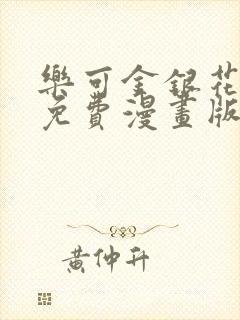 樂可金銀花
免費漫畫版
黃仲升